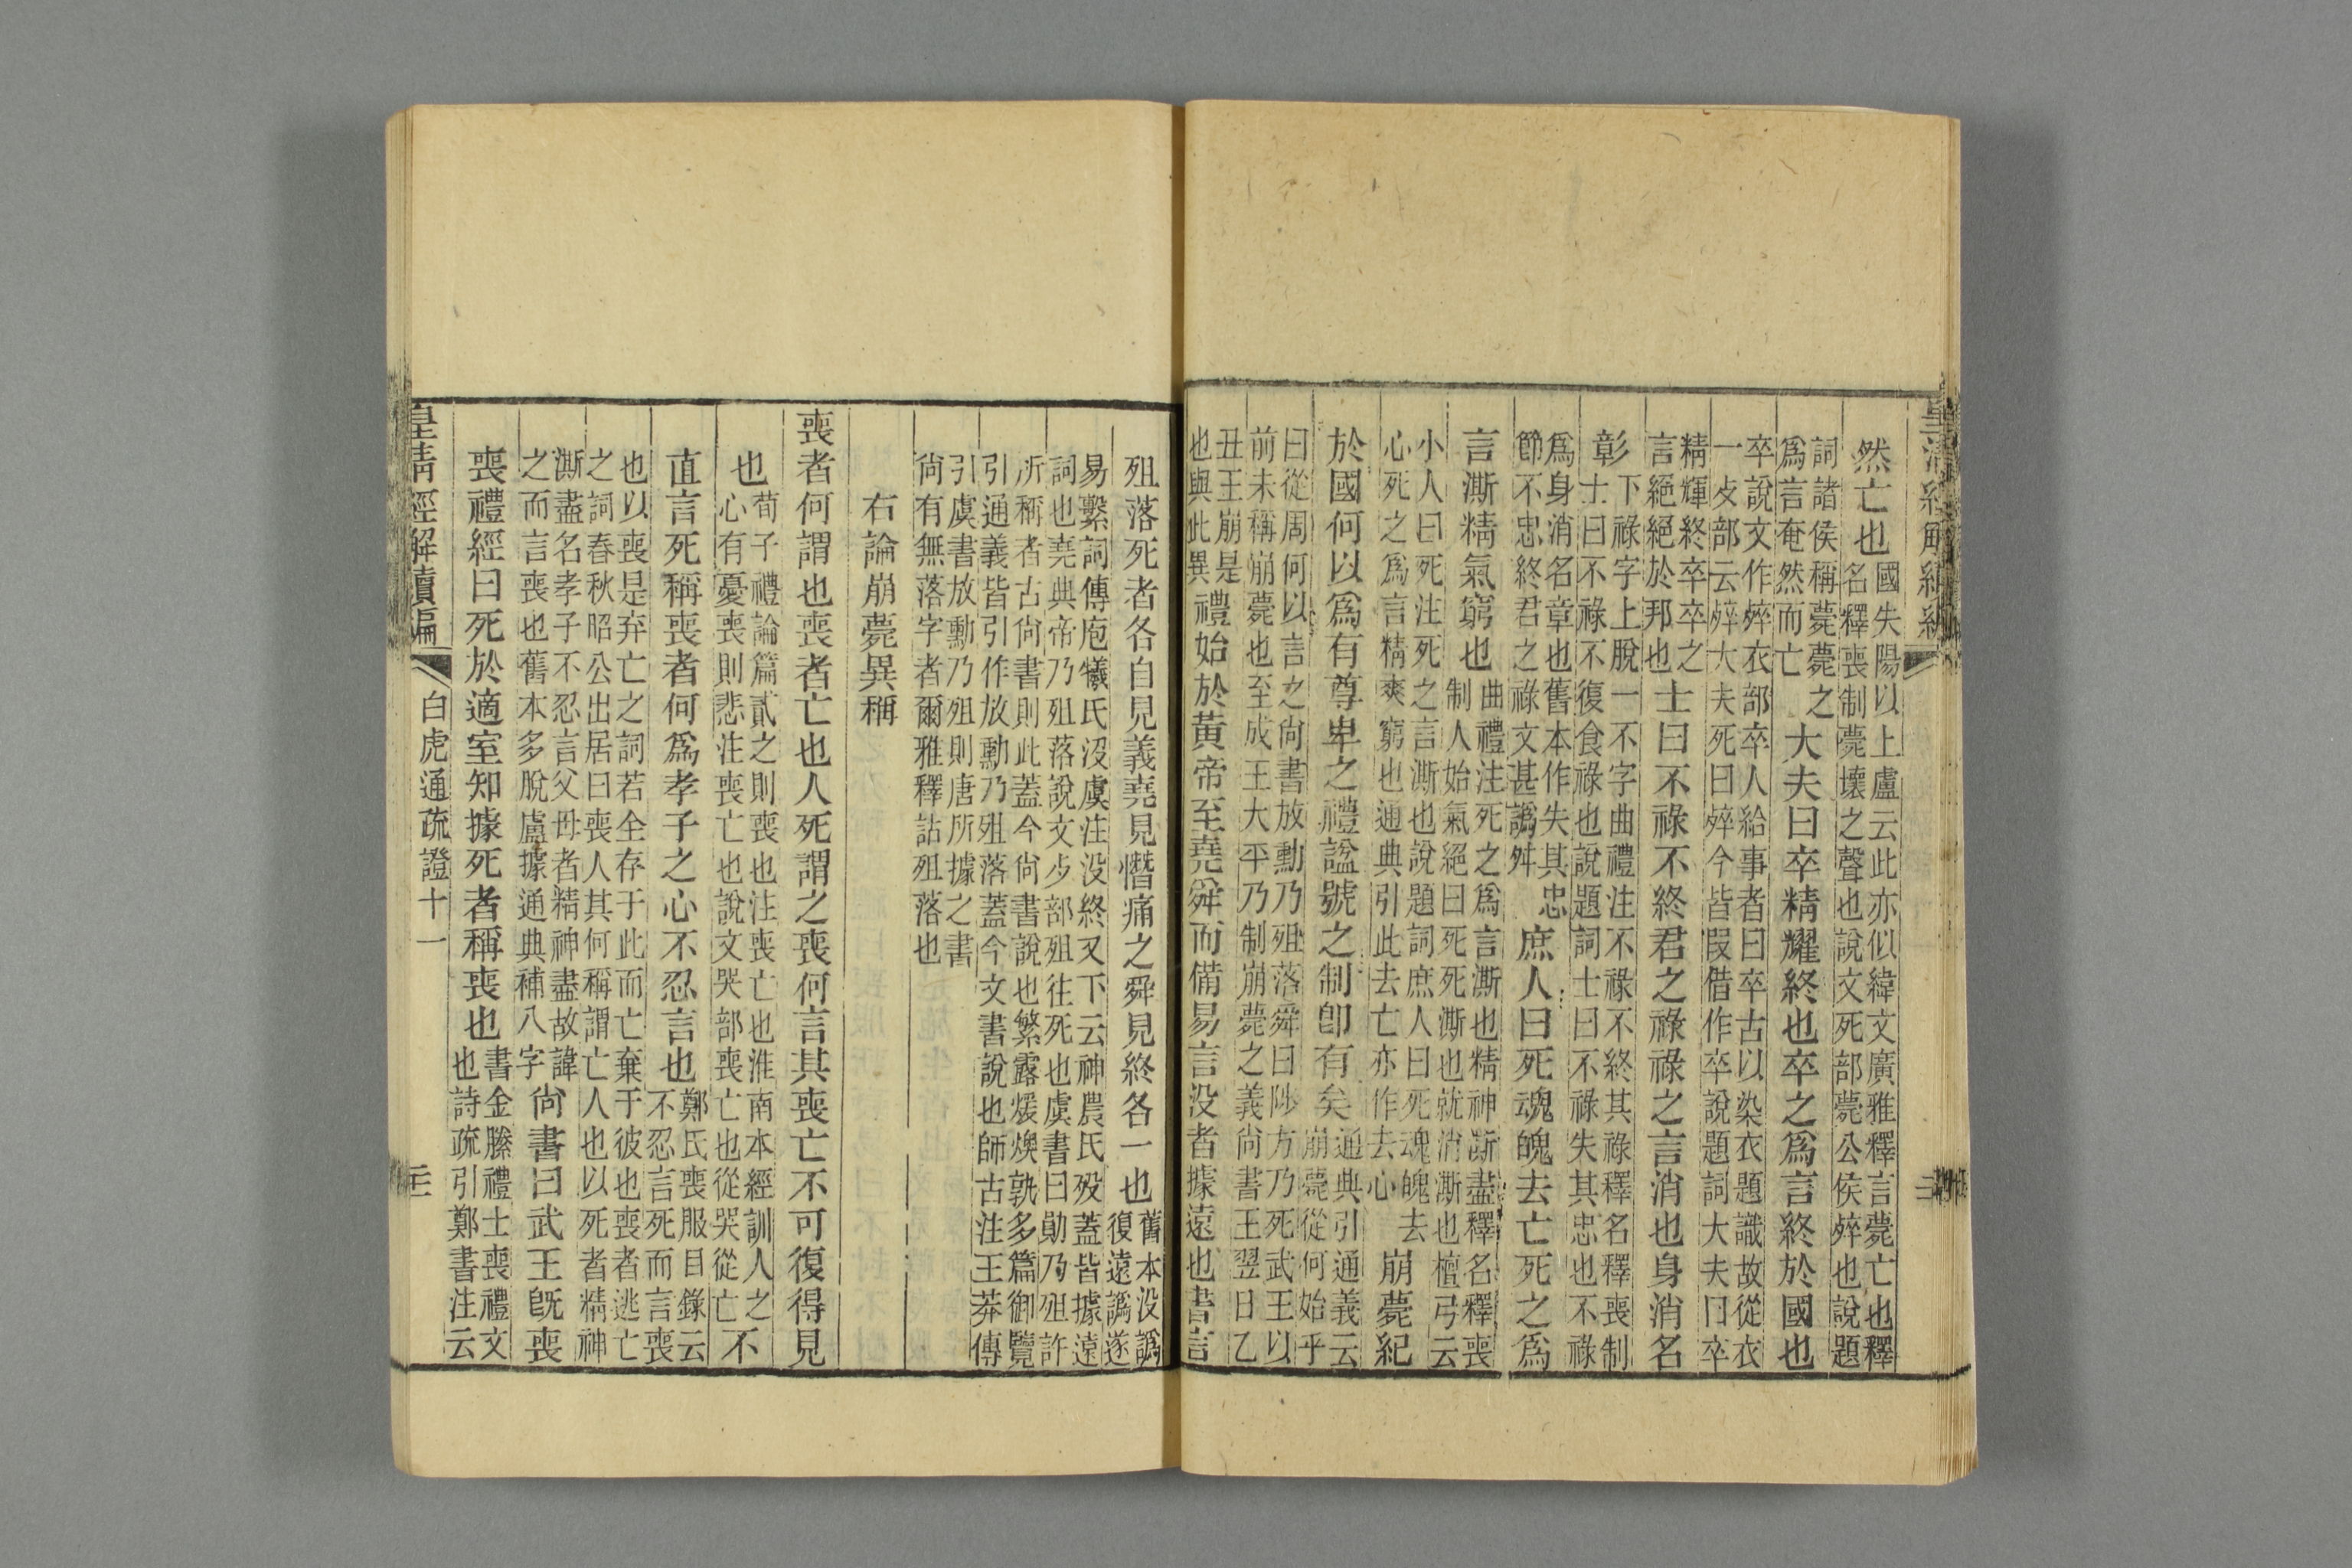 皇清經解續編
然亡也國失陽以上盧云此亦似緯文廣雅釋言薨亡也釋
名釋喪制薨壞之聲也說文死部薨公侯殚也說題
詞諸侯稱薨薨之
爲言奄然而亡大夫曰卒精耀終也卒之爲言終於國也
卒說文作殚衣部卒人給事者曰卒古以染衣題識故從衣
一歺部云殚大夫死曰殚今皆叚借作卒說題詞大夫曰卒
精輝終卒卒之
言絕絕於邦也士曰不祿不終君之祿祿之言消也身消名
彰下祿字上脫一不字曲禮注不祿不終其祿釋名釋喪制
士曰不祿不復食祿也說題詞士曰不祿失其忠也不祿
爲身消名章也舊本作失其忠
節不忠終君之祿文甚譌舛庶人曰死魂魄去亡死之爲
言澌精氣窮也曲禮注死之爲言澌也精神澌盡釋名釋喪
制人始氣絕曰死死澌也就消澌也檀弓云
小人曰死注死之言澌也說題詞庶人曰死魂魄去
心死之爲言精爽窮也通典引此去亡亦作去心崩薨紀
於國何以爲有尊卑之禮諡號之制卽有矣通典引通義云
崩薨從何始乎
曰從周何以言之尙書放勳乃殂落舜曰陟方乃死武王以
前未稱崩薨也至成王大平乃制崩薨之義尙書王翌日乙
丑王崩是
也與此異禮始於黃帝至堯舜而備易言没者據遠也書言
殂落死者各自見義堯見憯痛之舜見終各一也舊本没譌
復遠譌遂
易繫詞傳庖犧氏沒虞注没終又下云神農氏殁蓋皆據遠
詞也堯典帝乃殂落說文歺部殂往死也虞書曰勛乃殂許
所稱者古尙書則此蓋今尙書說也繁露煖燠孰多篇御覽
引通義皆引作放勳乃殂落蓋今文書說也師古注王莽傳
引虞書放勳乃殂則唐所據之書
尙有無落字者爾雅釋詁殂落也
右論崩薨異稱
喪者何謂也喪者亡也人死謂之喪何言其喪亡不可復得見
也荀子禮論篇貳之則喪也注喪亡也淮南本經訓人之
心有憂喪則悲注喪亡也說文哭部喪亡也從哭從亡不
直言死稱喪者何爲孝子之心不忍言也鄭氏喪服目錄云
不忍言死而言喪
也以喪是弃亡之詞若全存于此而亡棄于彼也喪者逃亡
之詞春秋昭公出居曰喪人其何稱謂亡人也以死者精神
澌盡名孝子不忍言父母者精神盡故諱
之而言喪也舊本多脫盧據通典補八字尙書曰武王旣喪
喪禮經曰死於適室知據死者稱喪也書金縢禮士喪禮文
也詩疏引鄭書注云
皇清經解續編
白虎通疏證十一